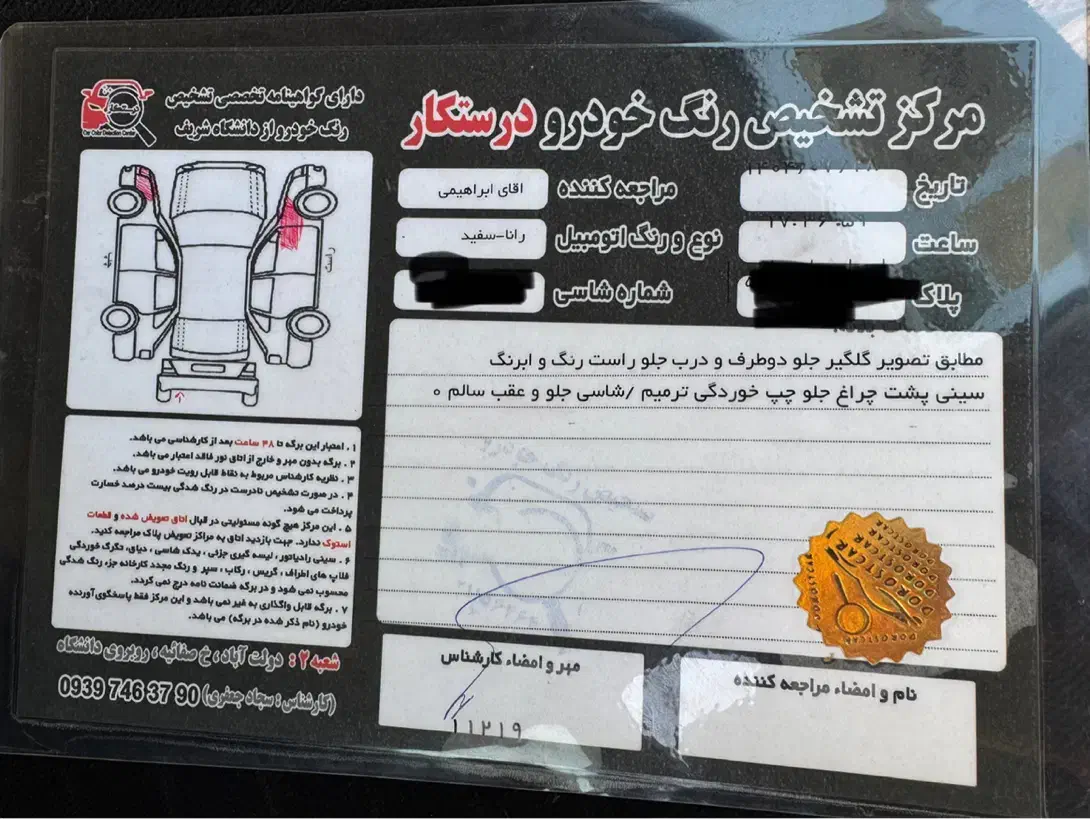 مرکز تشخیص رنگ خودرو درستکار
دارای گواهینامه تخصصی تشخیص
رنگ خودرو از دانشگاه شریف
درستکار
Car Color Detection Center
تاریخ
مراجعه کننده
اقای ابراهیمی
ساعت
نوع و رنگ اتومبیل
رانا-سفید
پلاک
شماره شاسی
راست
چپ
مطابق تصویر گلگیر جلو دوطرف و درب جلو راست رنگ و ابرنگ
سینی پشت چراغ جلو چپ خوردگی ترمیم /شاسی جلو و عقب سالم ٥
۱ . اعتبار این برگه تا ۴۸ ساعت بعد از کارشناسی می باشد.
۲ . برگه بدون مهر و خارج از اتاق نور فاقد اعتبار می باشد.
۳ . نظریه کارشناس مربوط به نقاط قابل رویت خودرو می باشد.
۴ . در صورت تشخیص نادرست در رنگ شدگی بیست درصد خسارت
پرداخت می شود.
۵ . این مرکز هیچ گونه مسئولیتی در قبال اتاق تعویض شده و قطعات
استوک ندارد. جهت بازدید اتاق به مراکز تعویض پلاک مراجعه کنید.
۶ . سینی رادیاتور ، لیسه گیری جزئی ، یدک شاسی ، دیاق، تگرگ خوردگی
قلاب های اطراف ، گریس ، رکاب ، سپر و رنگ مجدد کارخانه جزء رنگ شدگی
محسوب نمی شود و در برگه ضمانت نامه درج نمی گردد.
۷ . برگه قابل واگذاری به غیر نمی باشد و این مرکز فقط پاسخگوی آورنده
خودرو (نام ذکر شده در برگه) می باشد.
شعبه ۲ : دولت آباد ، خ صفائیه ، روبروی دانشگاه
(کارشناس : سجاد جعفری) 0939 746 37 90
DOROSTCAR
مهر و امضاء کارشناس
۱۱۲۱۹
نام و امضاء مراجعه کننده